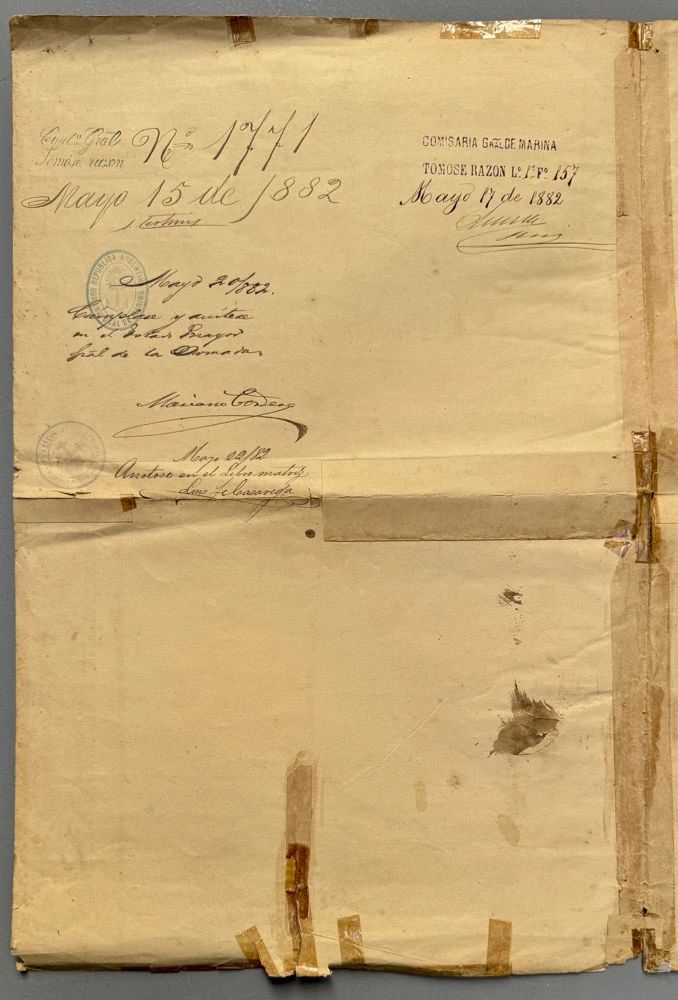 Cont.ª Gral
Tomóse razon
Nº 1771
Mayo 15 de 1882
COMISARIA GRAL DE MARINA
TÓMOSE RAZON Lº 1º Fº 157
Mayo 17 de 1882
REPUBLICA ARGENTINA
Mayo 20/882.
Cumplase y anótese
en el Estado Mayor
Gral de la Armada
Mariano Cordero
Mayo 22/82
Anotose en el Libro matriz
Luis